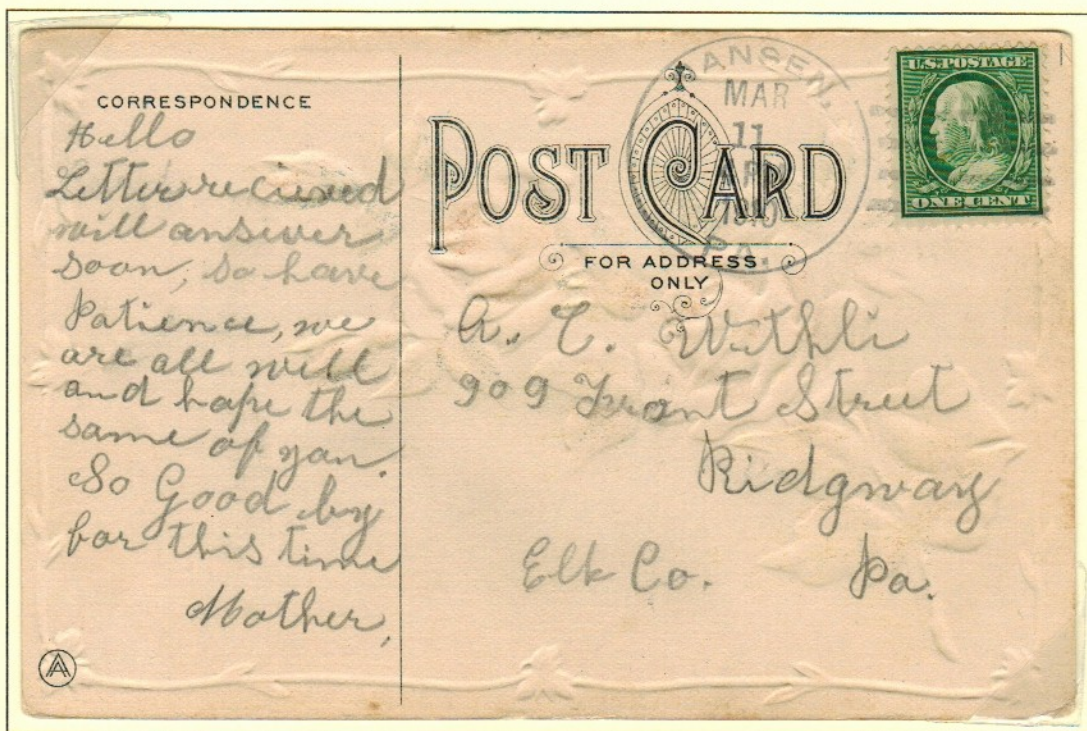 CORRESPONDENCE
Hello
Letter recieved
will answer
soon, so have
Patience, we
are all well
and hope the
same of you.
So Good by
for this time
Mother,
POST CARD
FOR ADDRESS
ONLY
ANSEN,
MAR
11
1910
PA.
U.S. POSTAGE
ONE CENT
A. C.
909 Front Street
Ridgway
Elk Co. Pa.